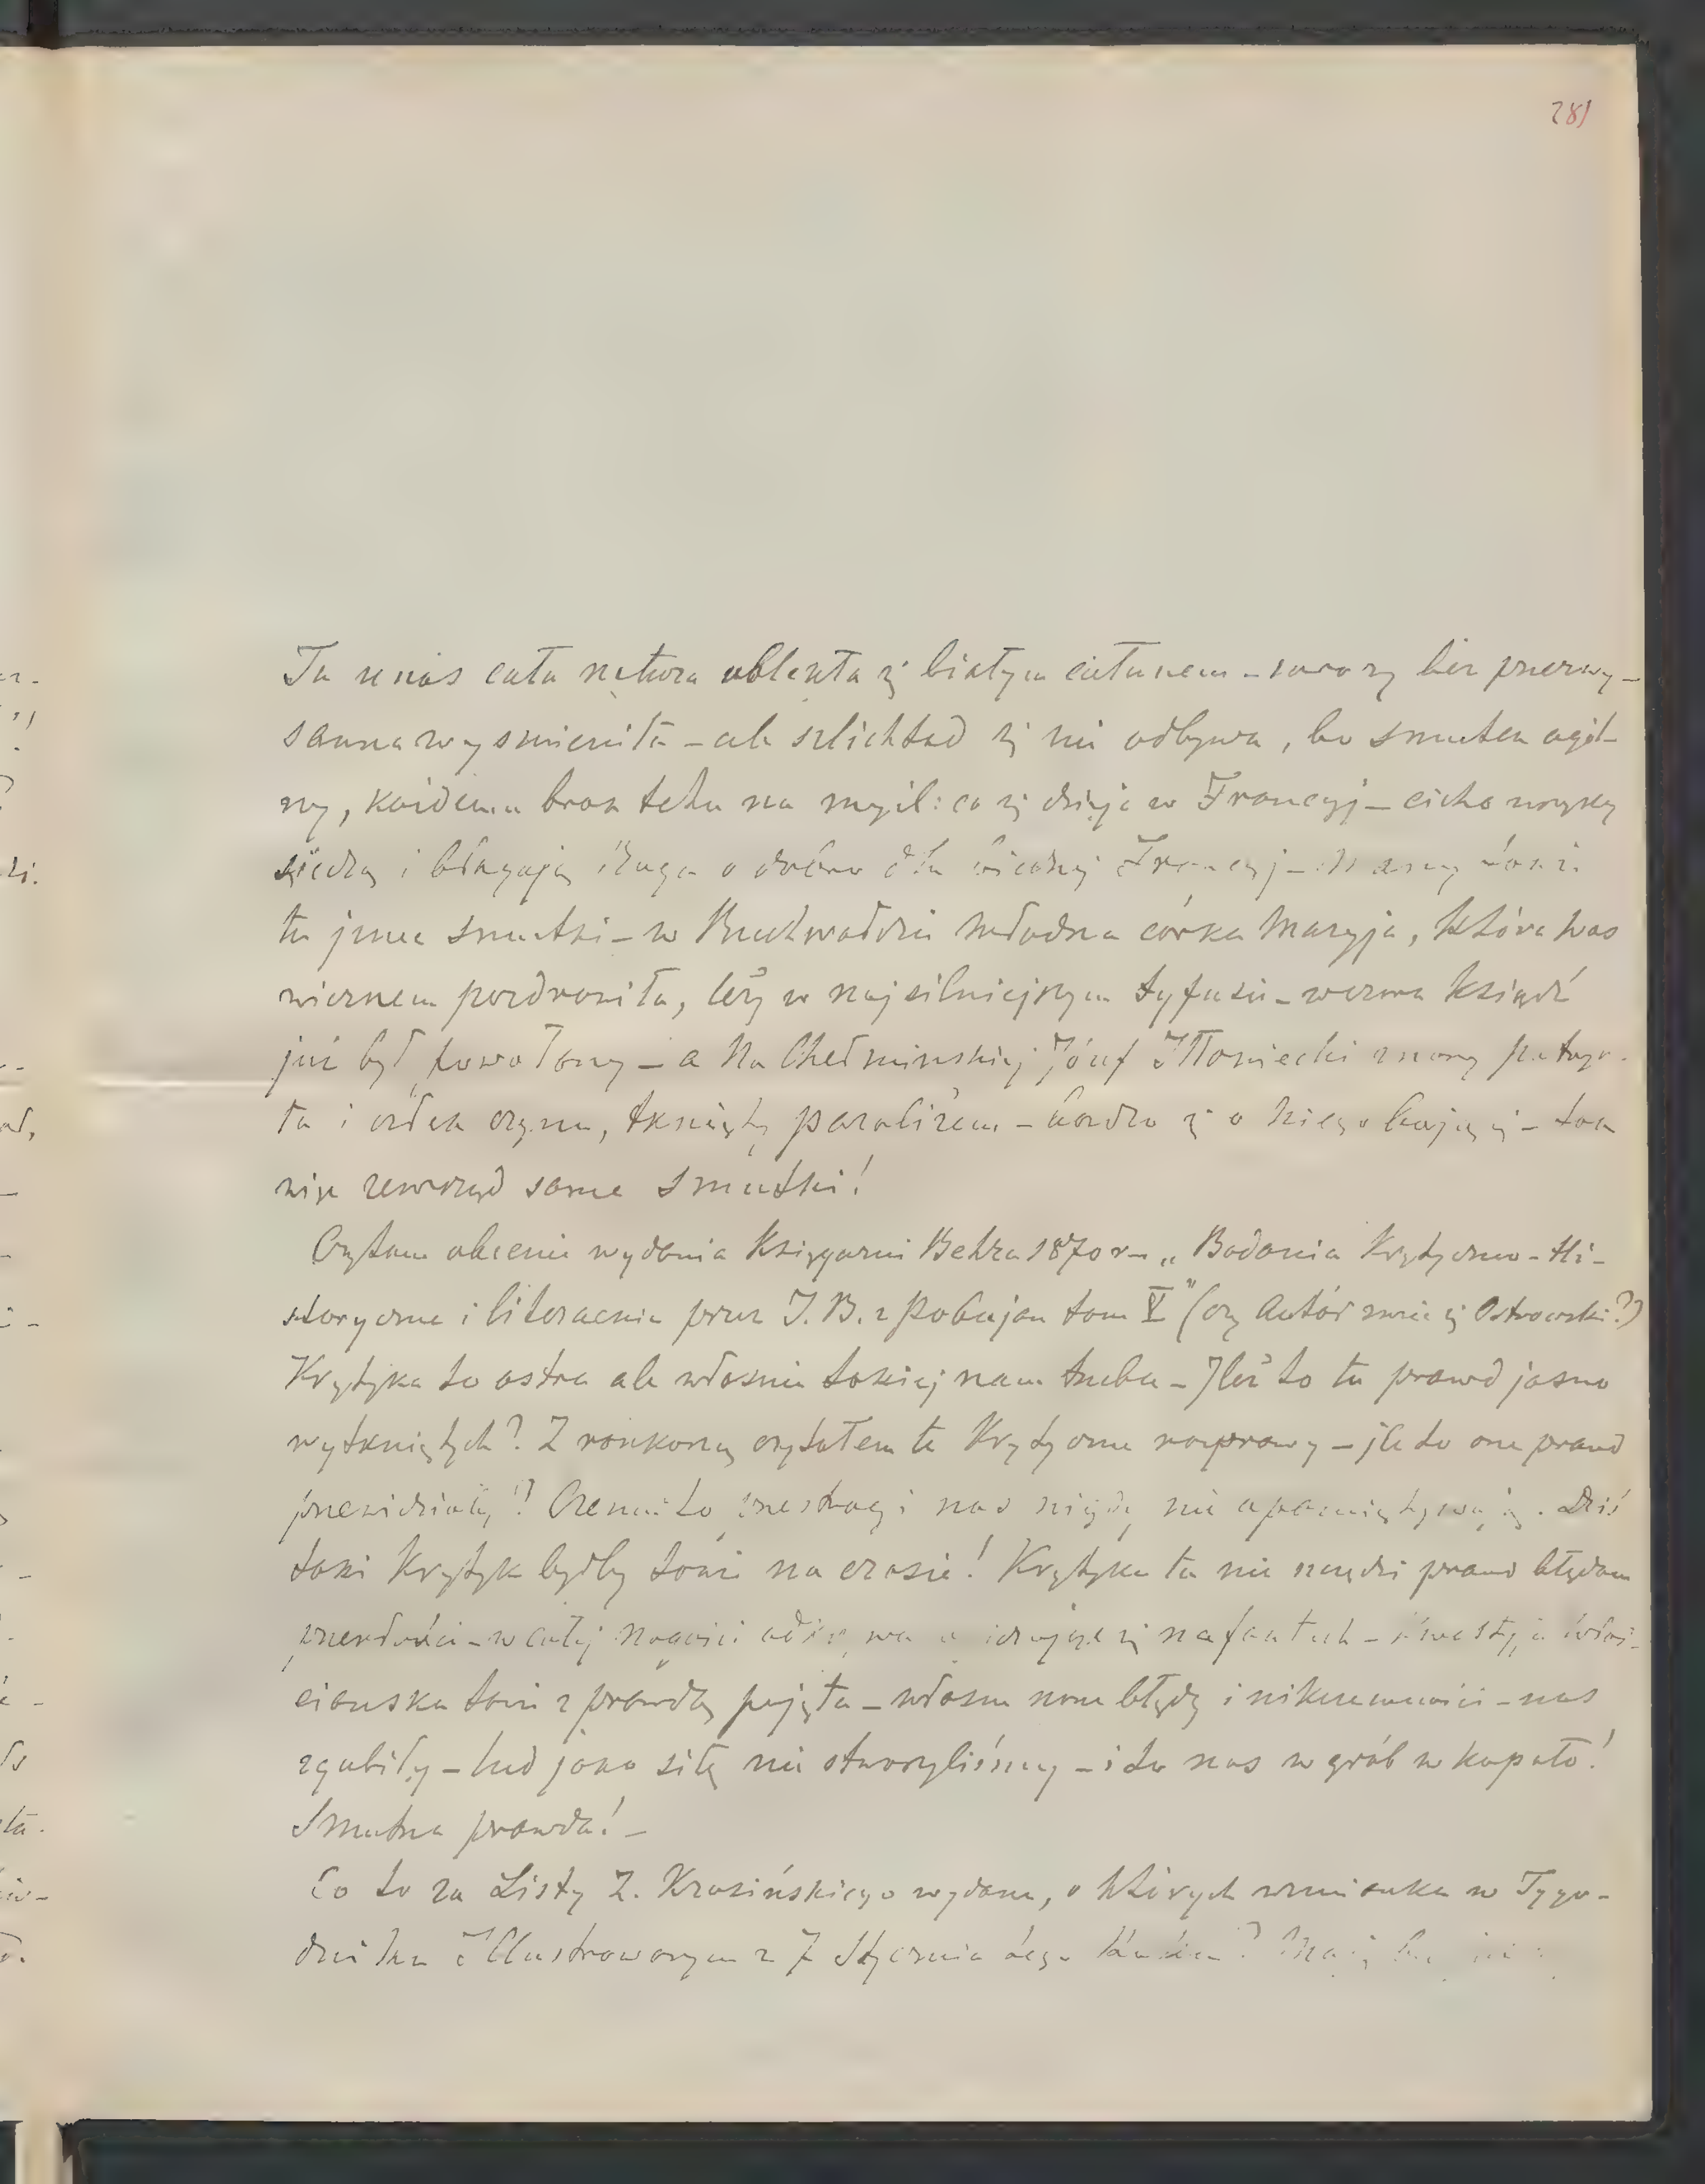 281
Tu u nas cała natura oblekła się białym całunem – mrozy bez przerwy –
sanna wyśmienita – ale szlichtad się nie odbywa, bo smutek ogól-
ny, każdemu brak tchu na myśl: co się dzieje w Francyj – cicho wszyscy
siedzą i błagają Boga o dobro dla biednej Francyj – Mamy
tu jnne smutki – w Buchwałdzie młodsza córka Maryja, która Was
wierszem pozdrowiła, leży w najsilniejszym tyfusie – wczora ksiądz
już był powołany – a Na Chełmińskiej Józef Iłłowiecki znany patryo-
ta i człek czynu, tknięty paraliżem – bardzo się o niego boją – tak
więc zewsząd same smutki!
Czytam obecnie wydania Księgarni Behra 1870 r – „Badania Krytyczno-Hi-
storyczne i literackie przez J. B. z Pobujan tom V" (czy Autór zwie się Ostrowski?)
Krytyka to ostra ale własnie takiej nam trzeba – Jleż to tu prawd jasno
wytkniętych? Z rozkoszą czytałem te Krytyczne rozprawy – jle to one prawd
przewidziały? Czemuż to przestrogi nas nigdy nie opamiętywają. Dziś
taki Krytyk byłby także na czasie! Krytyka ta nie szczędzi prawd błędom
przeszłości – w całej nagości na faktach – kwestyja włoś-
ciańska także z prawdą pojęta – własne nasze błędy i nikczemności – nas
zgubiły – lud jako siłę nie stworzyliśmy – i to nas w grób wkopało!
Smutna prawda! –
Co to za Listy Z. Krasińskiego wydane, o których wzmianka w Tygo-
dniku Illustrowanym z 7 Stycznia